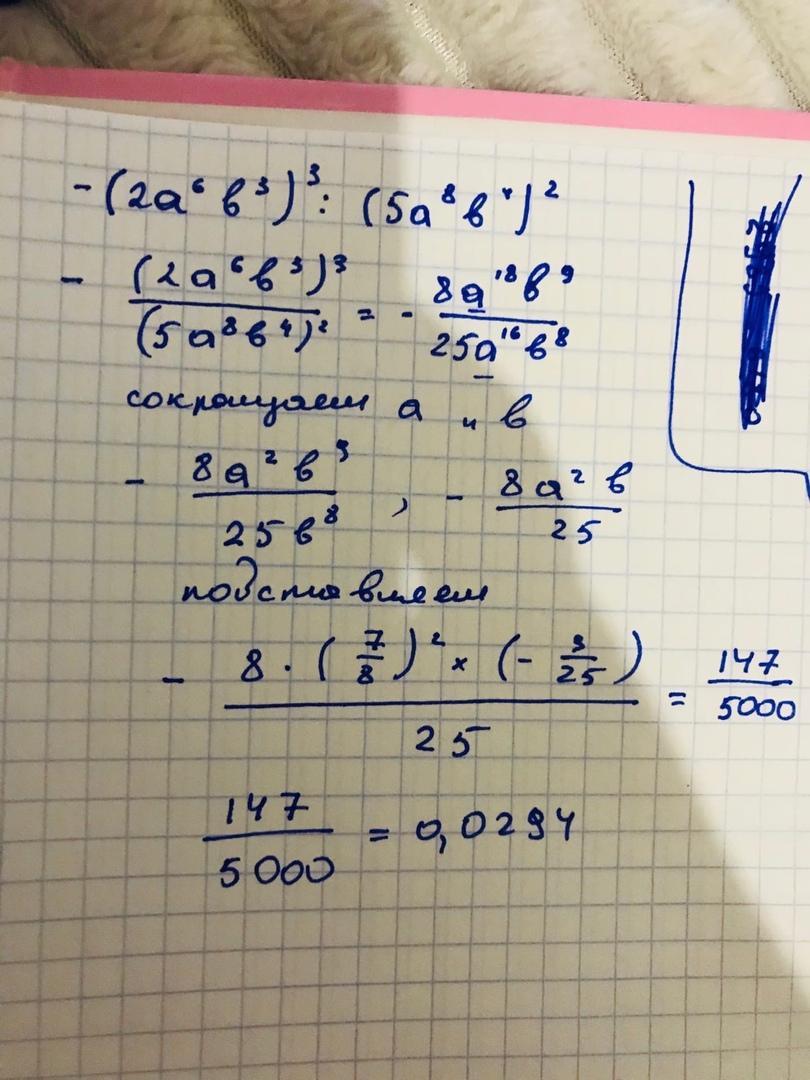 -(2a⁶b³)³ : (5a⁸b⁴)²
- (2a⁶b³)³ / (5a⁸b⁴)² = - 8a¹⁸b⁹ / 25a¹⁶b⁸
сокращаем a и b
- 8a²b⁹ / 25b⁸ , - 8a²b / 25
подставляем
- 8 · (7/8)² × (- 3/25) / 25 = 147/5000
147/5000 = 0,0294